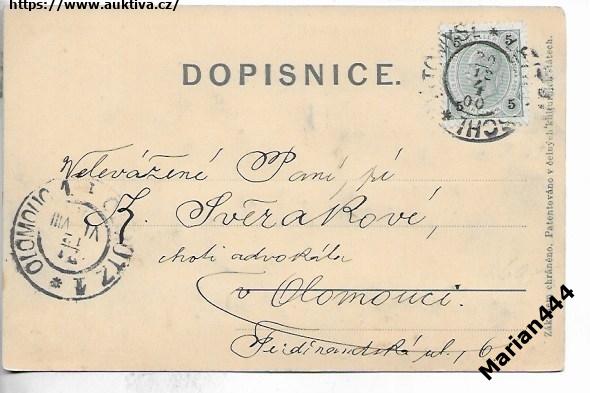 https://www.auktiva.cz/
DOPISNICE.
5 5
Velevážené Paní, pí
K. Svěrakové,
choti advokáta
v Olomouci.
Ferdinandská ul., 6
OLOMOUC
1 * OLOMOUC
Zákonem chráněno. Patentováno v čelných kulturních státech.
Marian444